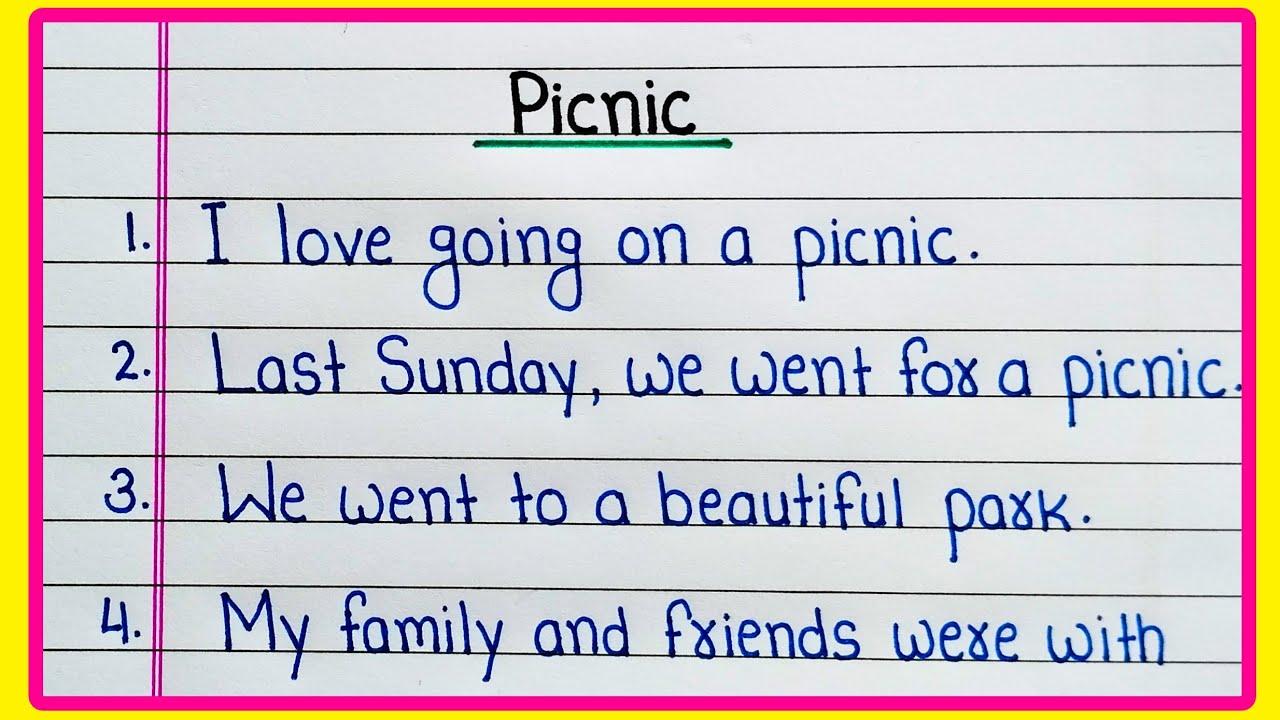 Picnic
1. I love going on a picnic.
2. Last Sunday, we went for a picnic.
3. We went to a beautiful park.
4. My family and friends were with